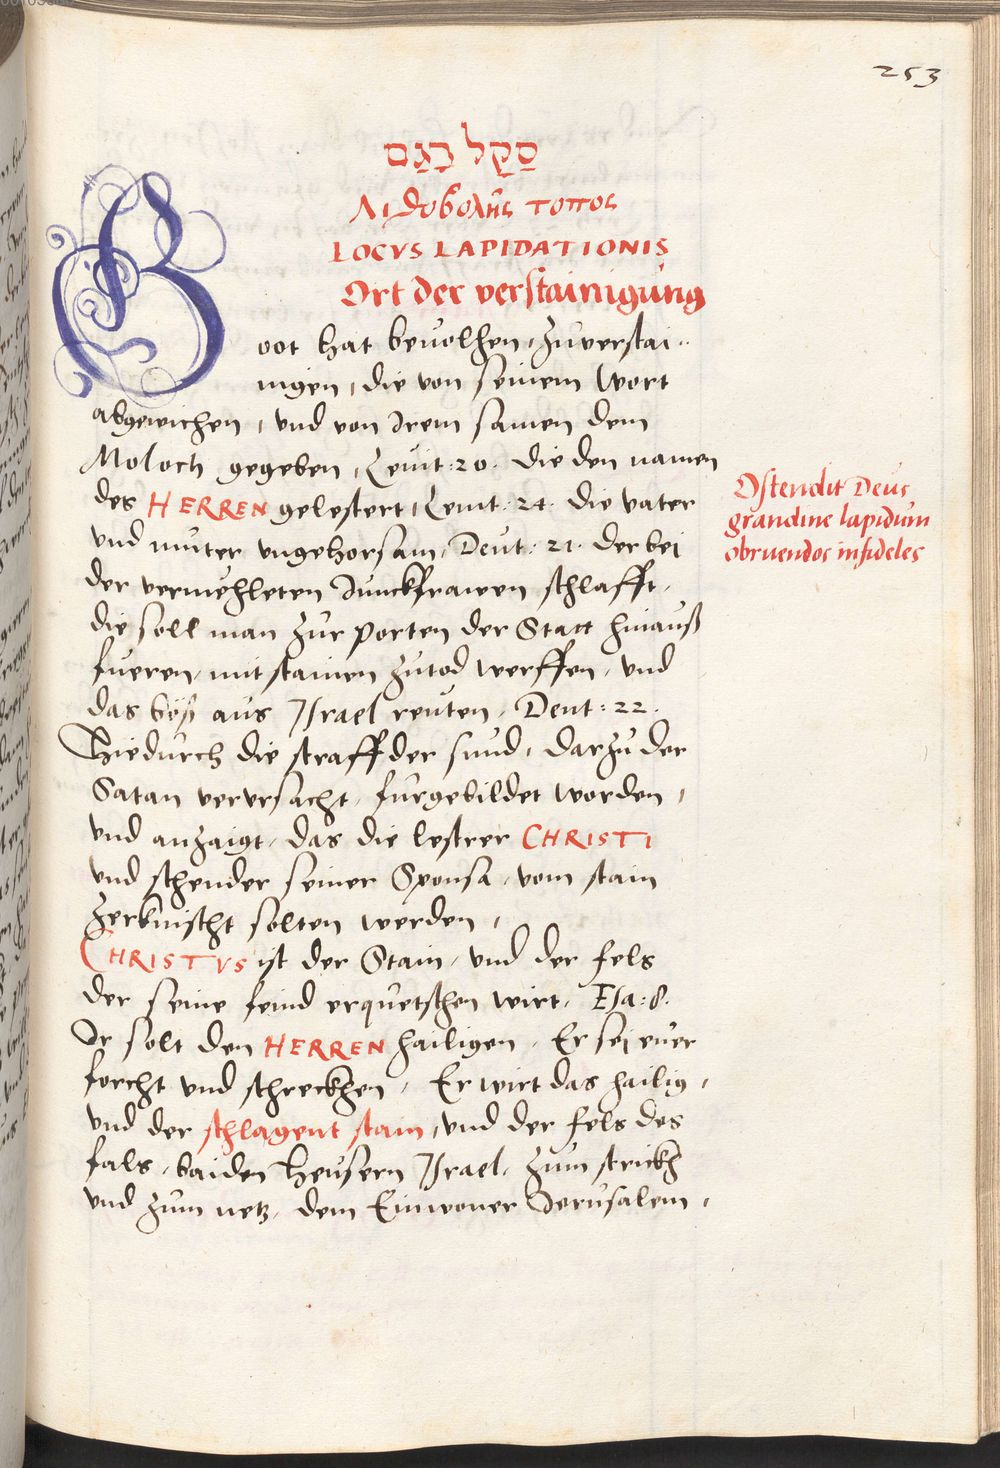 253
סַקַל רָגַם
Λιθοβολῆς τοπος
LOCVS LAPIDATIONIS
Ort der verstainigung
Goot hat beuolhen, zuverstai..
nigen, die von seinem Wort
abgewichen, vnd von Irem samen dem
Moloch gegeben, Leuit: 20. die den namen
des HERREN gelestert, Leuit: 24. die vater
vnd muter vngehorsam, Deut: 21. der bei
der vermehleten Junckfrawen schlafft,
die soll man zur porten der Statt hinauß
fueren, mit stainen zutod werffen, vnd
das böß aus Israel reuten, Deut: 22.
Hiedurch die straff der sund, darzu der
Satan verursacht, furgebildet worden,
vnd anzaigt, das die lestrer CHRISTI
vnd schender seiner Sponsa, vom stain
zerknischt solten werden,
CHRISTVS ist der Stain, vnd der fels
der seine feind erquetschen wirt, Esa: 8.
Ir solt den HERREN hailigen, Er sei euer
forcht vnd schreckhen, Er wirt das hailig,
vnd der schlagent stain, vnd der fels des
fals, baiden Heusern Israel, zum strickh
vnd zum netz, dem Einwoner Jerusalem,
Ostendit Deus
grandine lapidum
obruendos infideles